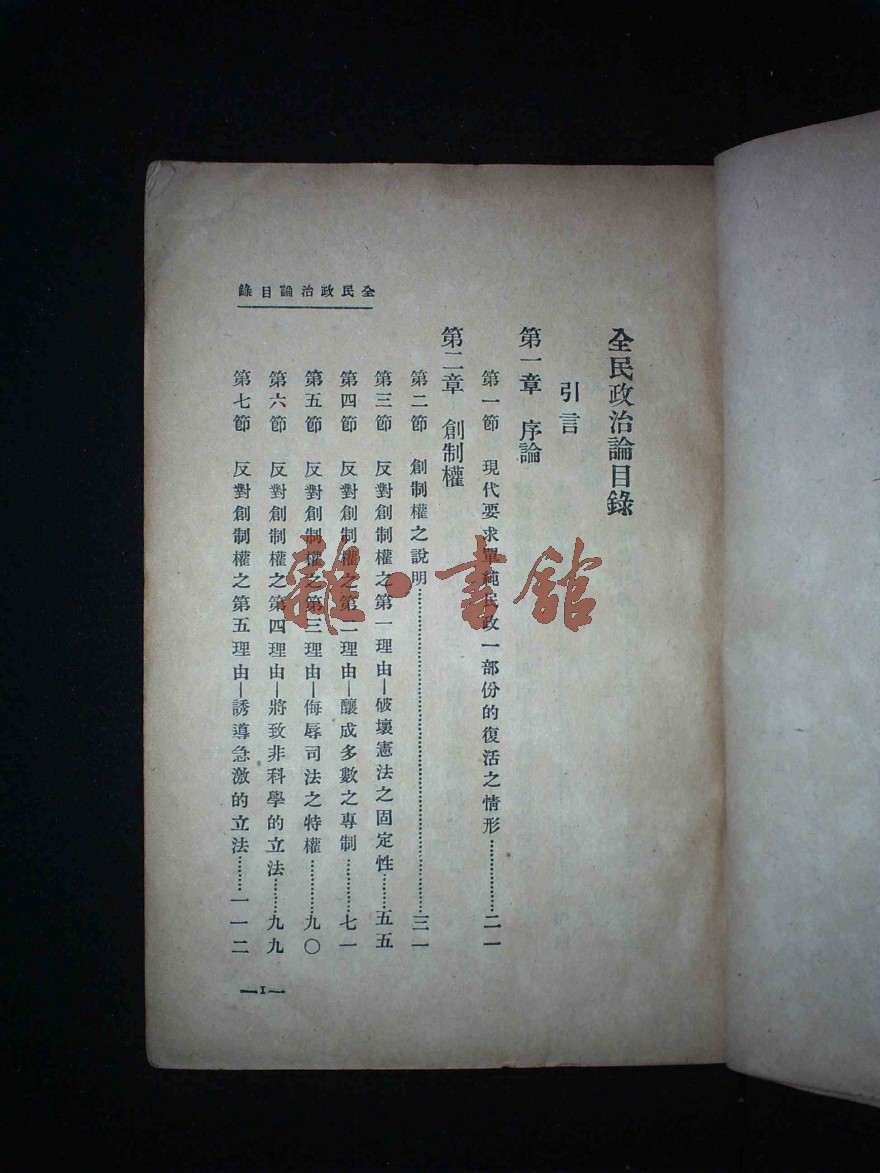 全民政治論目錄
全民政治論目錄
引言
第一章 序論
第一節 現代要求單純民政一部份的復活之情形………………二一
第二章 創制權
第二節 創制權之說明………………………………三一
第三節 反對創制權之第一理由—破壞憲法之固定性……五五
第四節 反對創制權之第二理由—釀成多數之專制………七一
第五節 反對創制權之第三理由—侮辱司法之特權………九〇
第六節 反對創制權之第四理由—將致非科學的立法……九九
第七節 反對創制權之第五理由—誘導急激的立法……一一二
—1—
雜·書館